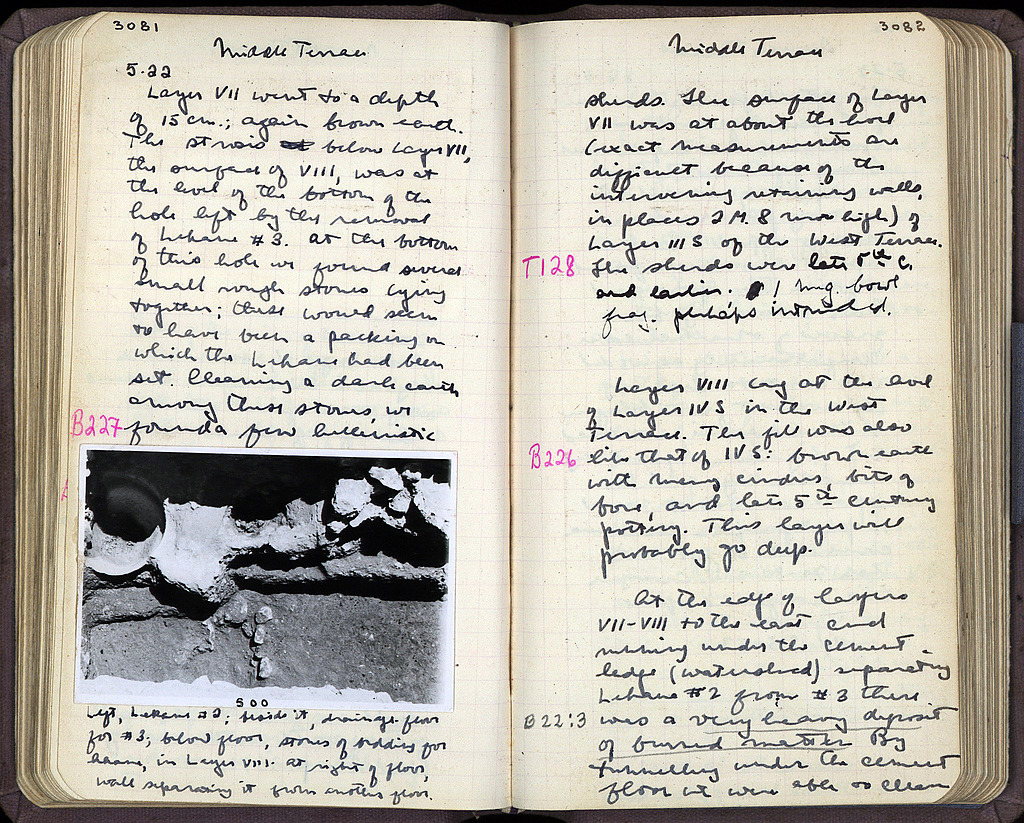 3081
Middle Terrace
5.22
Layer VII went to a depth
of 15 cm.; again brown earth.
The strosis below Layer VII,
the surface of VIII, was at
the level of the bottom of the
hole left by the removal
of Lekane #3. At the bottom
of this hole we found several
small rough stones lying
together; these would seem
to have been a packing on
which the Lekane had been
set. Cleaning a dark earth
among these stones, we
B227 found a few hellenistic
500
Left, Lekane #2; beside it, drainage floor
for #3; below floor, stones of bedding for
lekane, in Layer VIII. At right of floor,
wall separating it from another floor.
3082
Middle Terrace
sherds. The surface of Layer
VII was at about the level
(exact measurements are
difficult because of the
intervening retaining walls,
in places 2 M. 8 now high) of
Layer III S of the West Terrace.
T128 The sherds were late 5th c.
and earlier. 1 Meg. bowl
frag. perhaps intruded.
Layer VIII lay at the level
of Layer IV S in the West
Terrace. The fill was also
B226 like that of IV S: brown earth
with many cinders, bits of
bone, and late 5th century
pottery. This layer will
probably go deep.
At the edge of layers
VII-VIII to the east and
running under the cement
ledge (watershed) separating
Lekane #2 from #3 there
B22:3 was a very heavy deposit
of burned matter. By
tunnelling under the cement
floor we were able to clean